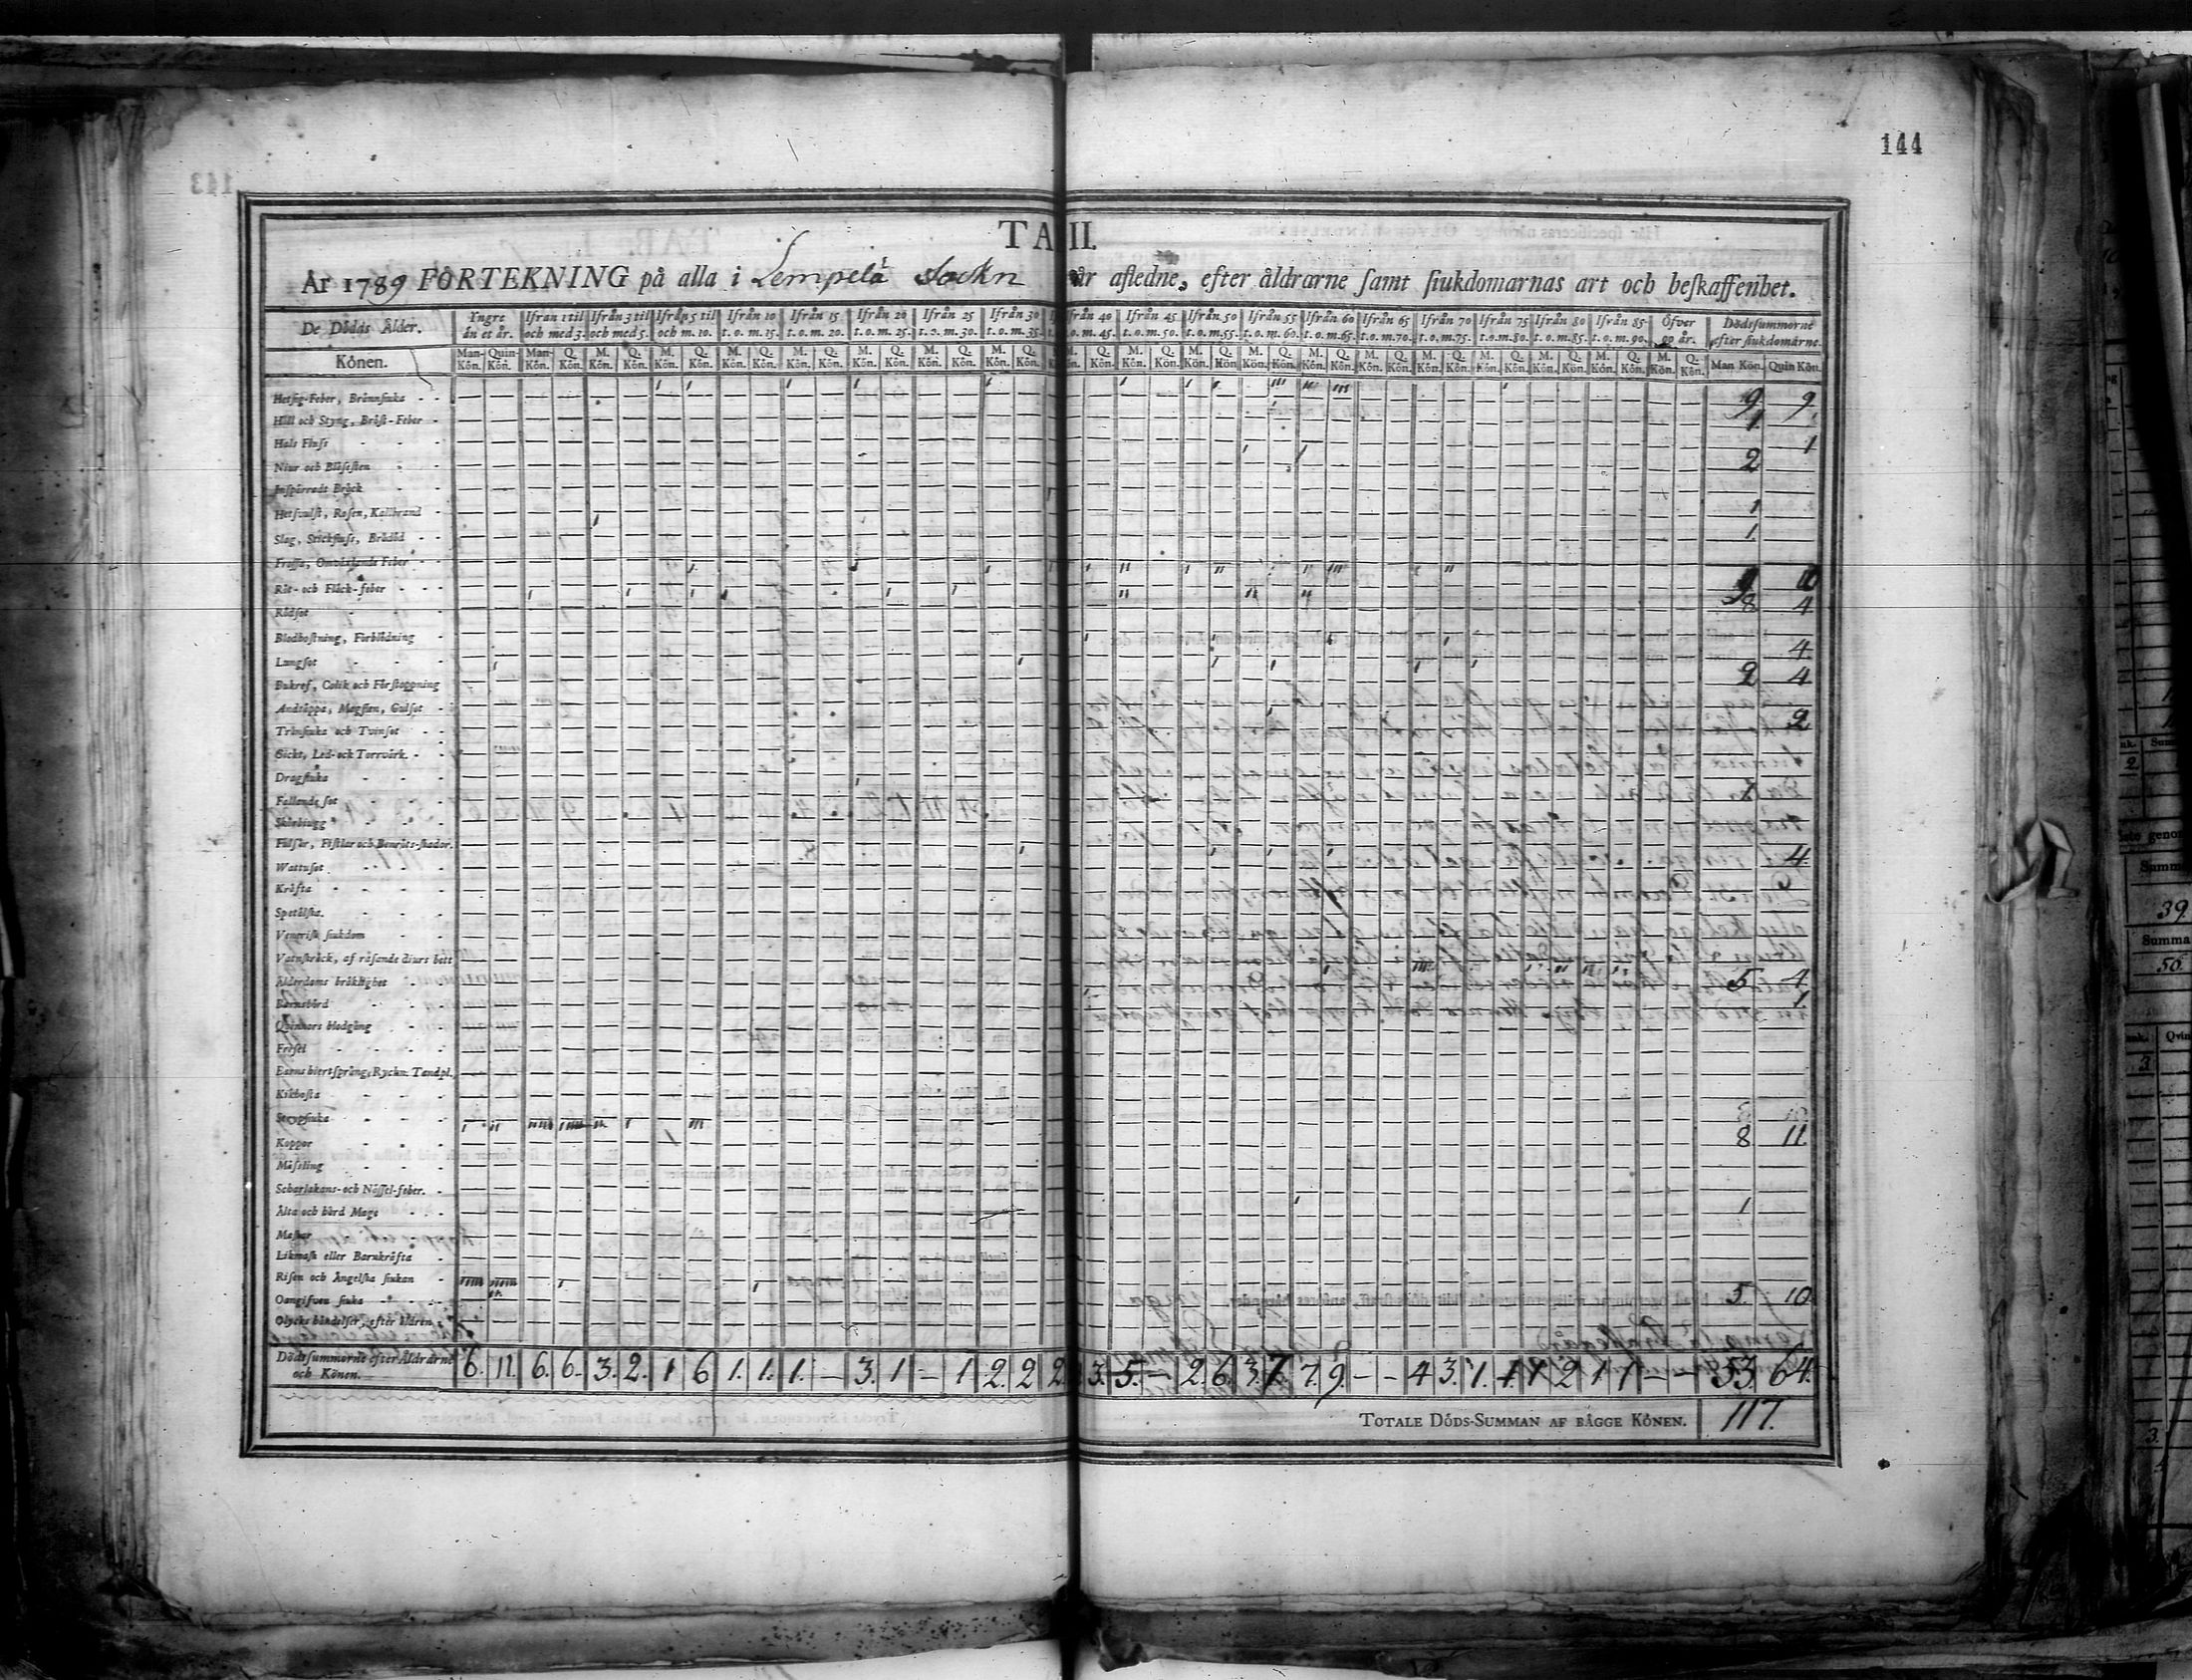 144
TA II.
År 1789 FÖRTEKNING på alla i Lempelä Sockn år afledne, efter åldrarne samt siukdomarnas art och beskaffenhet.
De Dödas Ålder. Yngre än et år. Ifrån 1 til och med 3. Ifrån 3 til och med 5. Ifrån 5 til och m. 10. Ifrån 10 t. o. m. 15. Ifrån 15 t. o. m. 20. Ifrån 20 t. o. m. 25. Ifrån 25 t. o. m. 30. Ifrån 30 t. o. m. 35. Ifrån 40 t. o. m. 45. Ifrån 45 t. o. m. 50. Ifrån 50 t. o. m. 55. Ifrån 55 t. o. m. 60. Ifrån 60 t. o. m. 65. Ifrån 65 t. o. m. 70. Ifrån 70 t. o. m. 75. Ifrån 75 t. o. m. 80. Ifrån 80 t. o. m. 85. Ifrån 85 t. o. m. 90. Öfver 90 år. Dödssummorne efter siukdomarne.
Könen. Man-Kön. Quin-Kön. Man-Kön. Q. Kön. M. Kön. Q. Kön. M. Kön. Q. Kön. M. Kön. Q. Kön. M. Kön. Q. Kön. M. Kön. Q. Kön. M. Kön. Q. Kön. M. Kön. Q. Kön. Man Kön. Quin Kön.
Hetsig-Feber, Brännsiuka 9 9
Håll och Styng, Bröst-Feber 1
Hals Fluss 1
Niur och Blåsesten 2
Inspärradt Bråck
Hetsvulst, Rosen, Kallbrand 1
Slag, Stickfluss, Brådöd 1
Frossa, Omväxlande Feber
Röt- och Fläck-feber 10
Rödsot 8 4
Blodhostning, Förblödning
Lungsot 4
Bukref, Colik och Förstoppning 2 4
Andtäppa, Magsten, Gulsot
Trånsiuka och Tvinsot 2
Gickt, Led- och Torrvärk.
Dragsiuka
Fallande sot 1
Skörbiugg
Fulslår, Fistlar och Benröts-skador.
Wattusot 4
Kräfta
Spetälska.
Venerisk siukdom
Vatnskräck, af rasande diurs bett
Ålderdoms bräklighet 5 4
Barnsbörd 1
Qvinnors blodgång
Frosel
Barns hiertsprång, Ryckn. Tandpl.
Kikhosta
Strypsiuka
Koppor 8 11
Mässling
Scharlakans- och Nässel-feber.
Älta och hård Mage 1
Maskar
Likmask eller Barnkräfta
Risen och Ängelska siukan
Oangifven siuka 5. 10
Olycks händelser, efter åldren
Dödssummorne efter Åldrarne och Könen. 6. 11. 6. 6. 3. 2. 1 6 1. 1. 1. — 3. 1 — 1 2. 2 2 3. 5. — 2 6 3. 7. 7. 9. — — 4 3. 1. 1 1 2 1 1 — — 53 64.
TOTALE DÖDS-SUMMAN AF BÄGGE KÖNEN. 117.